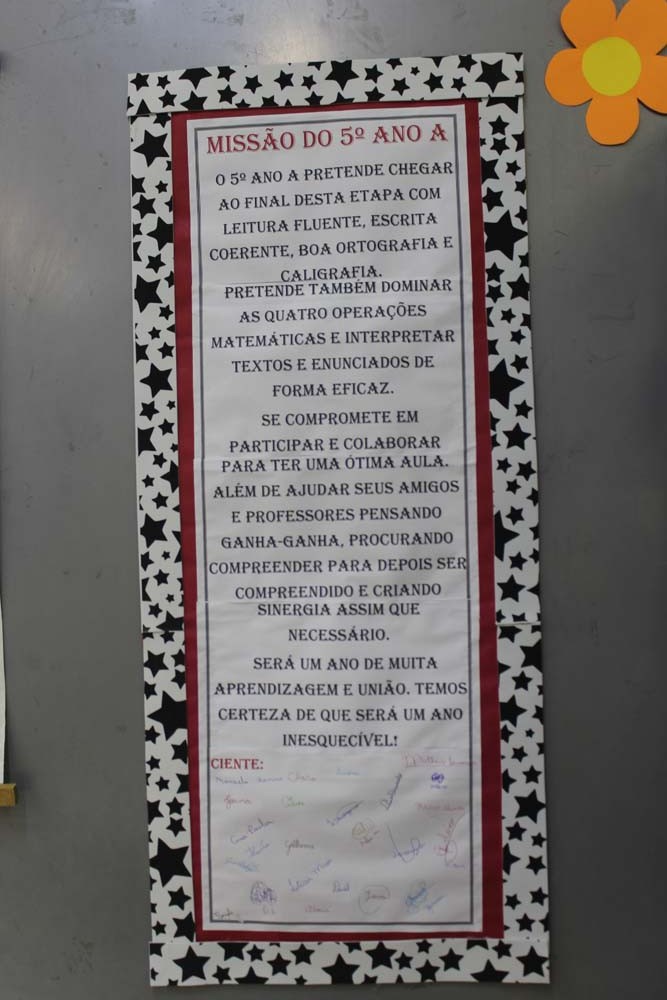 MISSÃO DO 5º ANO A
O 5º ANO A PRETENDE CHEGAR
AO FINAL DESTA ETAPA COM
LEITURA FLUENTE, ESCRITA
COERENTE, BOA ORTOGRAFIA E
CALIGRAFIA.
PRETENDE TAMBÉM DOMINAR
AS QUATRO OPERAÇÕES
MATEMÁTICAS E INTERPRETAR
TEXTOS E ENUNCIADOS DE
FORMA EFICAZ.
SE COMPROMETE EM
PARTICIPAR E COLABORAR
PARA TER UMA ÓTIMA AULA.
ALÉM DE AJUDAR SEUS AMIGOS
E PROFESSORES PENSANDO
GANHA-GANHA, PROCURANDO
COMPREENDER PARA DEPOIS SER
COMPREENDIDO E CRIANDO
SINERGIA ASSIM QUE
NECESSÁRIO.
SERÁ UM ANO DE MUITA
APRENDIZAGEM E UNIÃO. TEMOS
CERTEZA DE QUE SERÁ UM ANO
INESQUECÍVEL!
CIENTE:
Guilherme